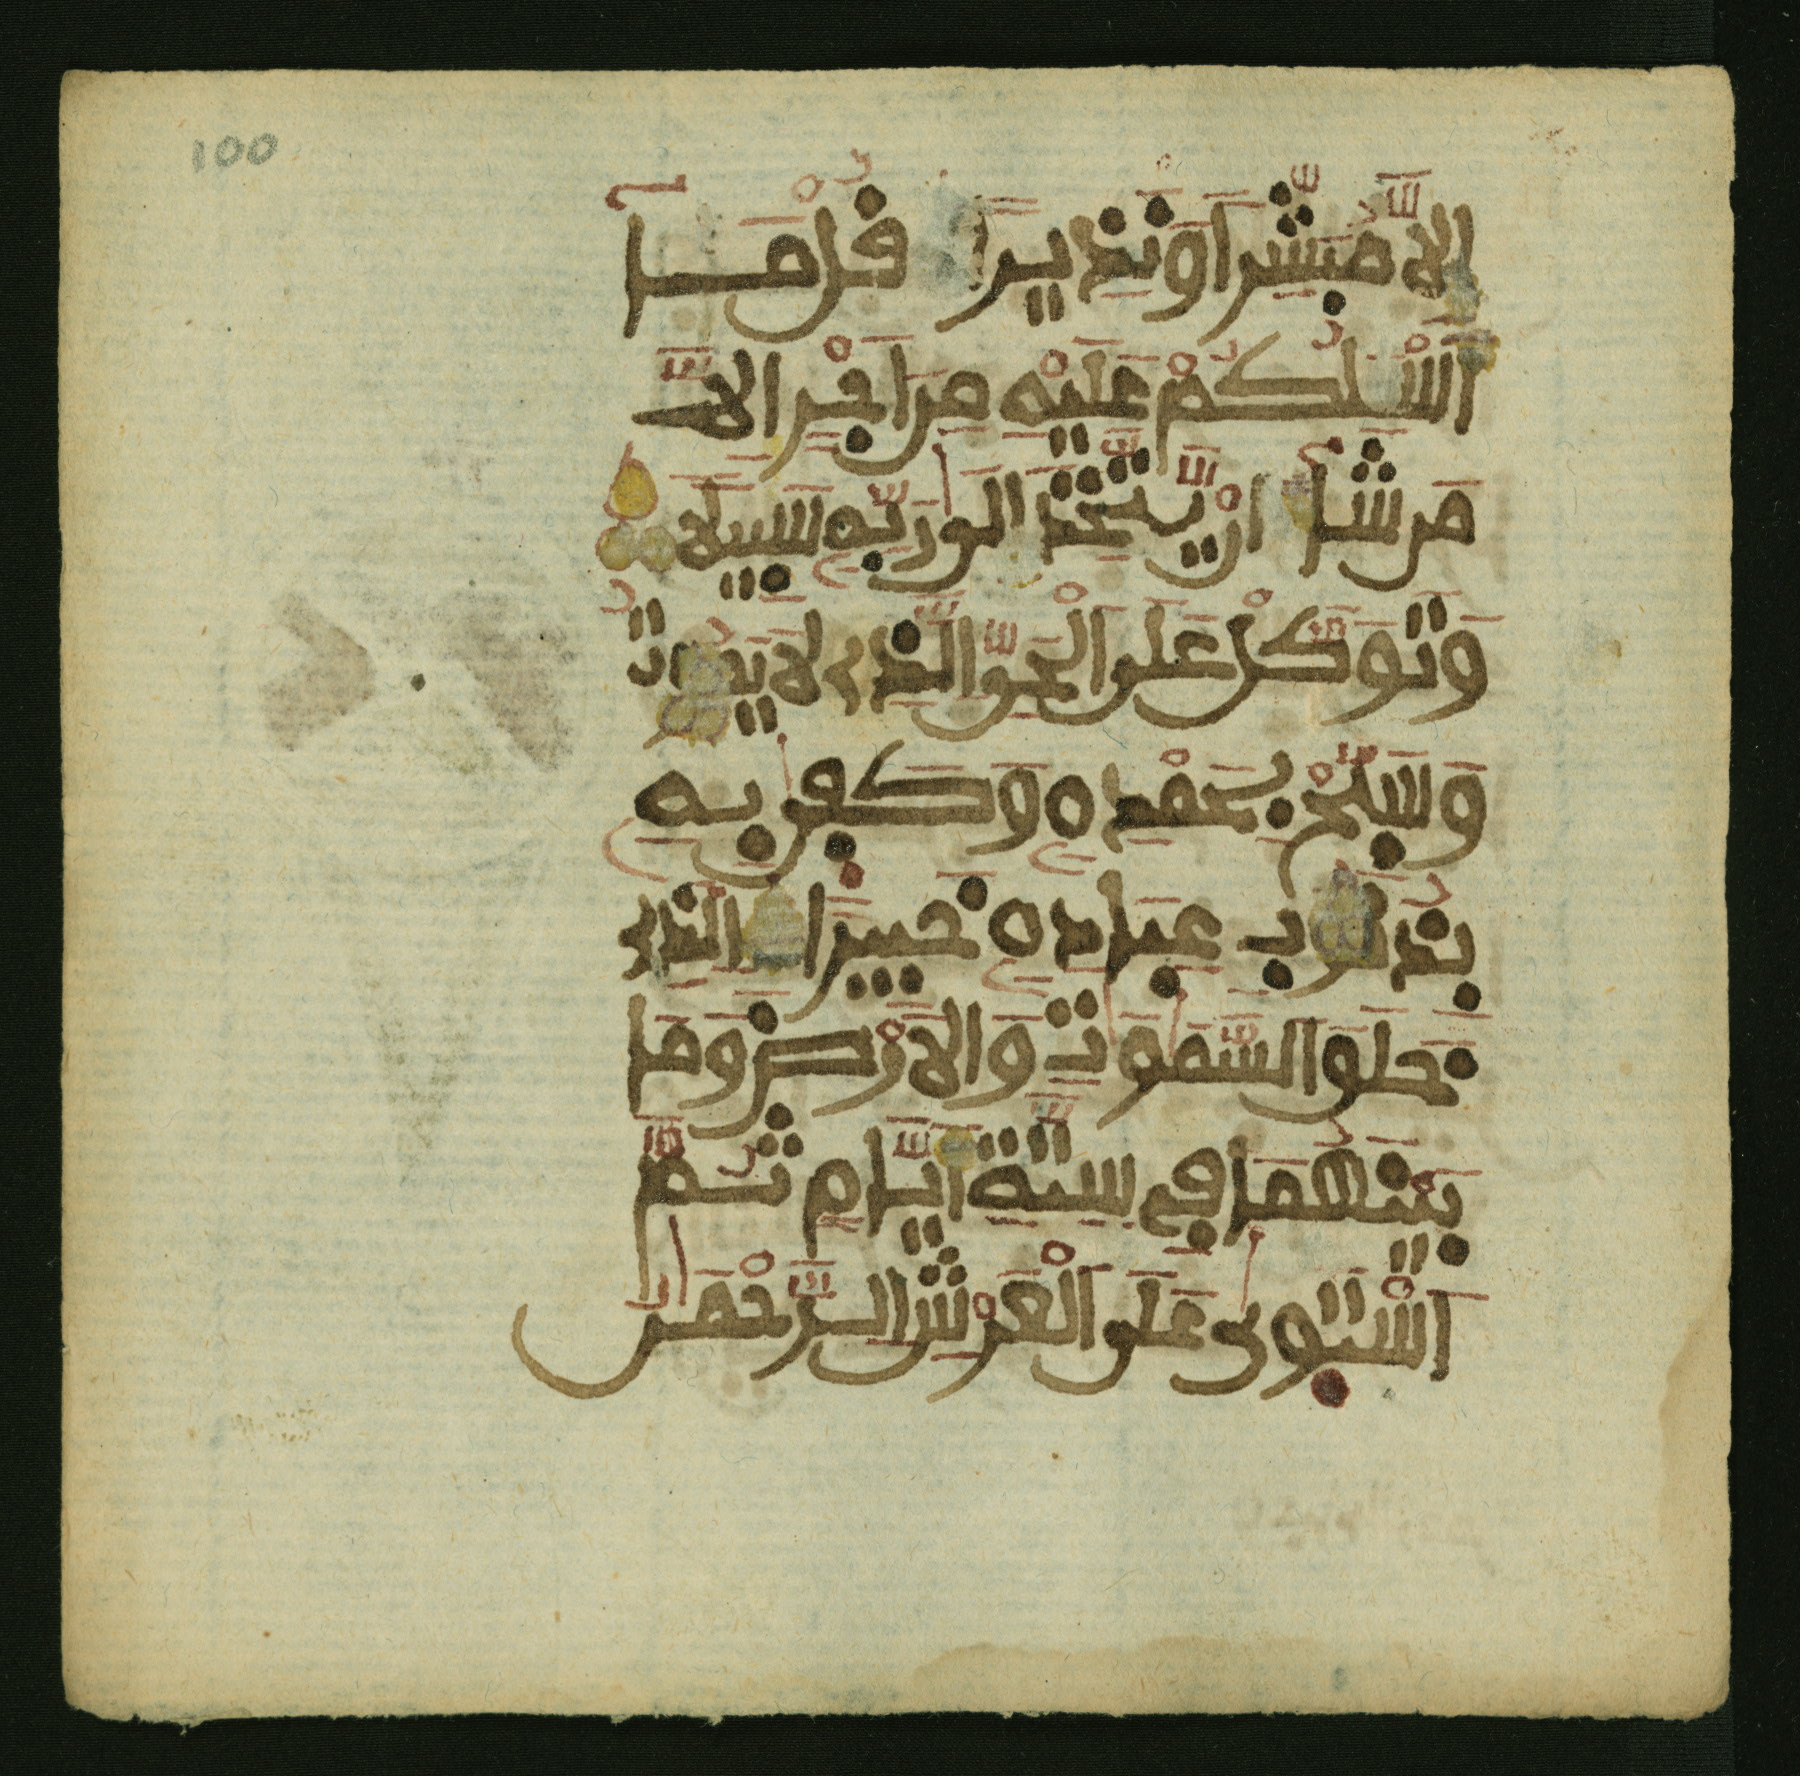 100
إلا مبشرا ونذيرا قل ما
أسلكم عليه من أجر إلا
من شا أن يتخذ إلى ربه سبيلا
وتوكل على الحي الذي لا يموت
وسبح بحمده وكفى به
بذنوب عباده خبيرا الذي
خلق السموت والأرض وما
بينهما في ستة أيام ثم
استوى على العرش الرحمن